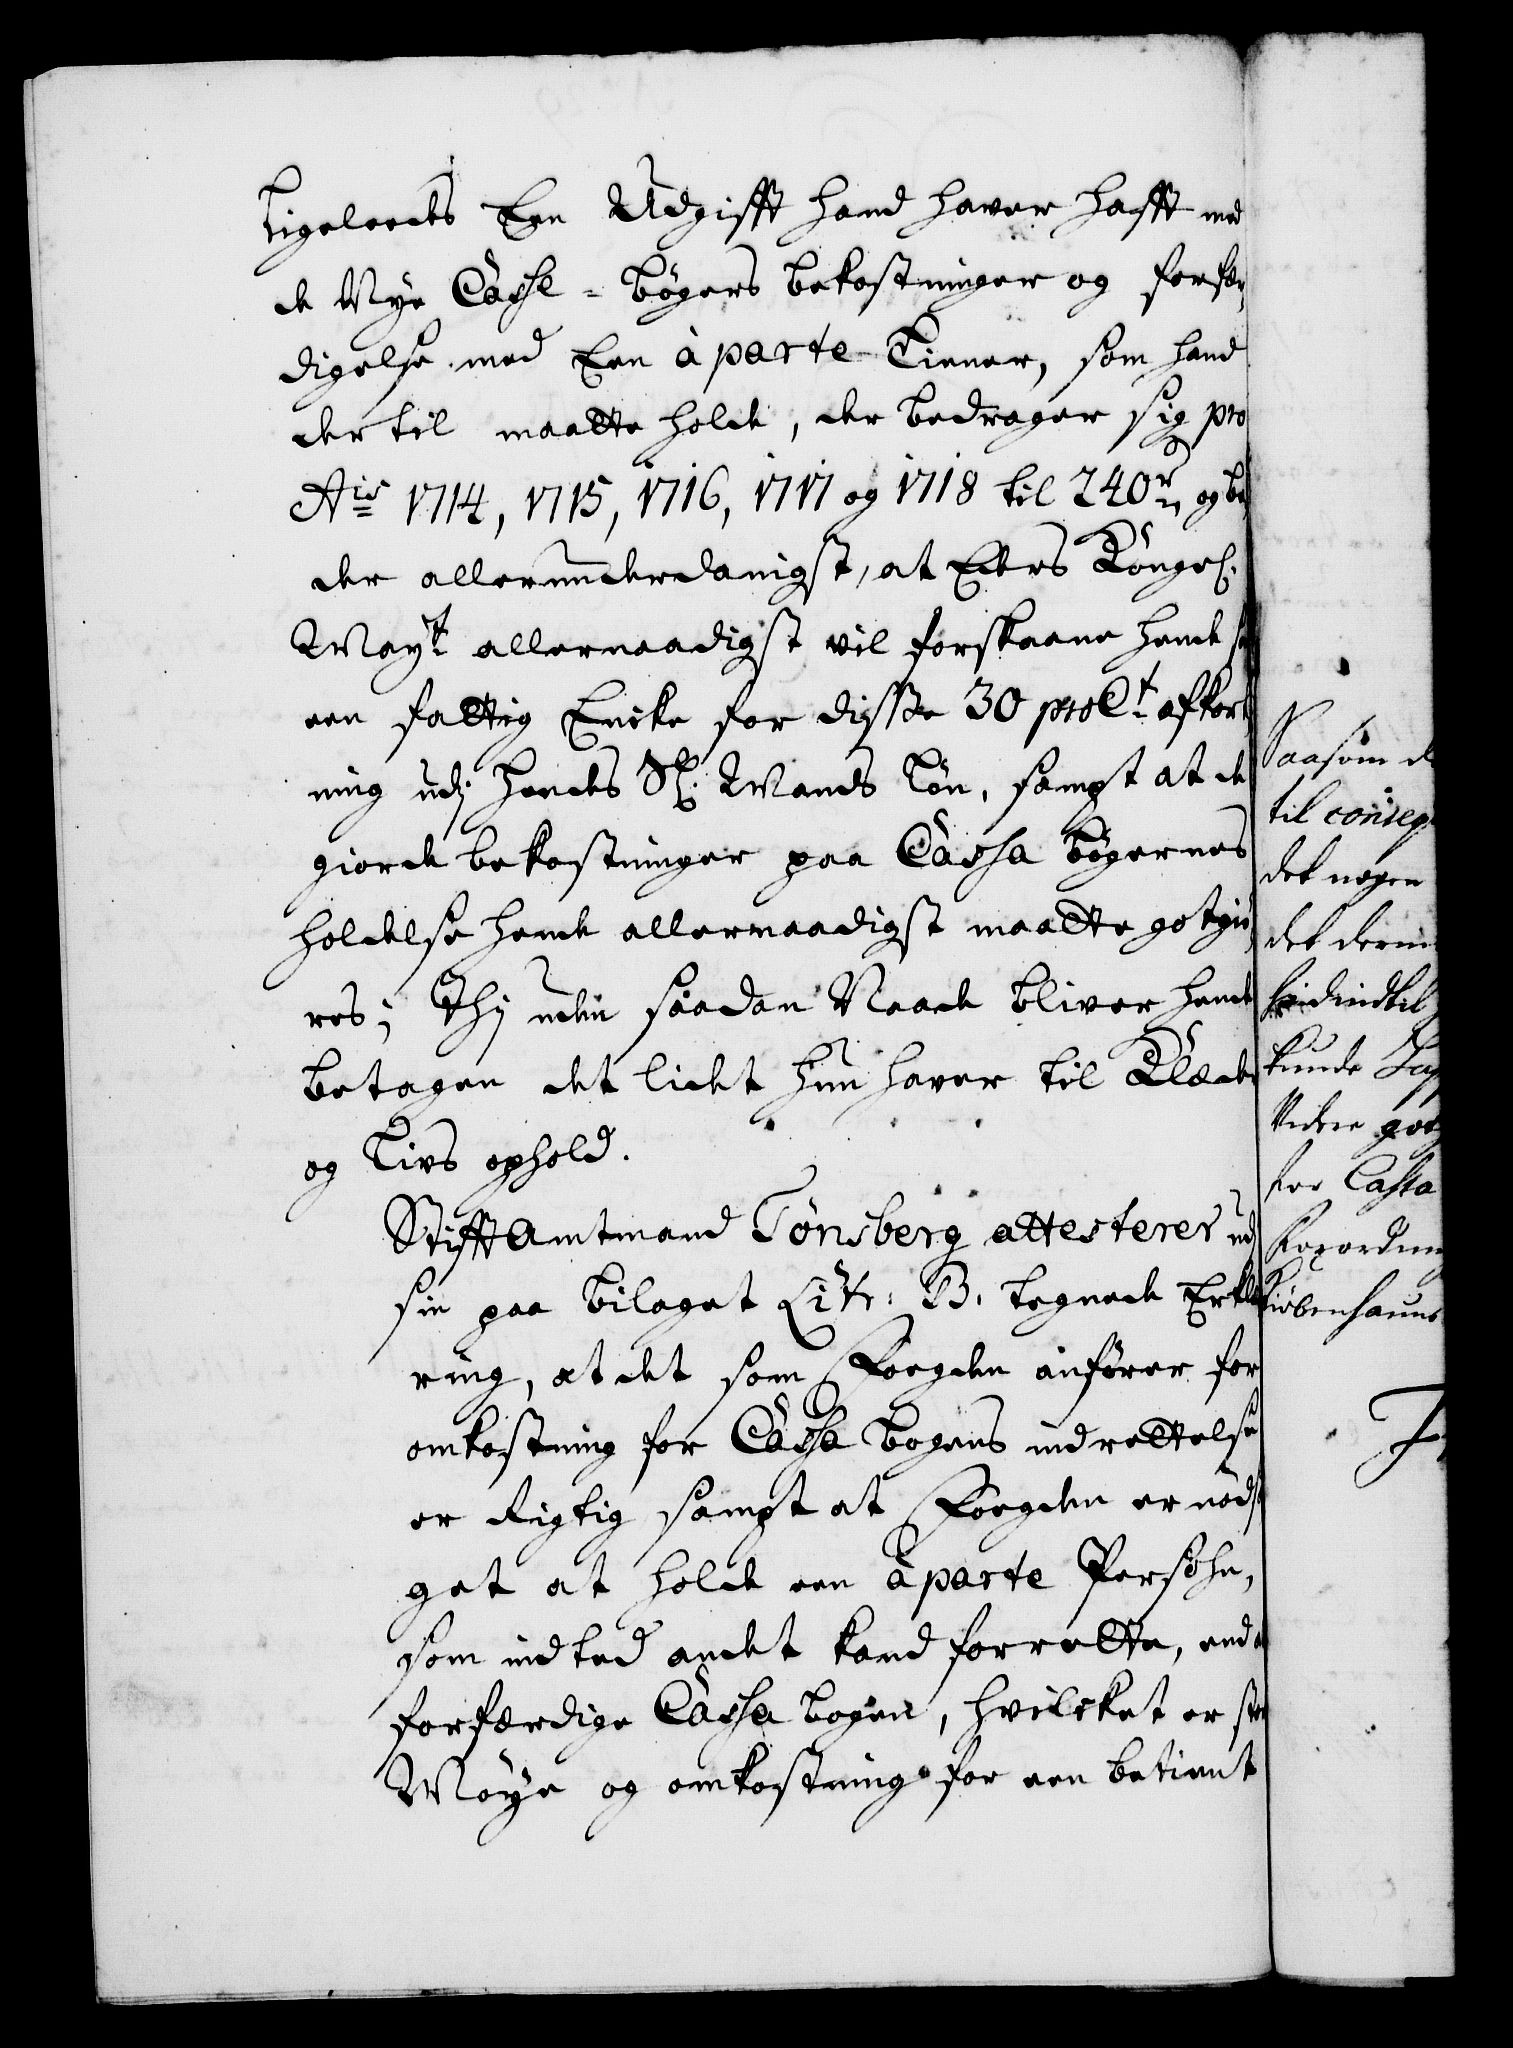 Ligeleedes Een Udgifft hand haver hafft med
de Nye Casse-bögers bekostninger og forfær,
digelse med Een à parte Tiener, som hand
der til maatte holde, der bedrager sig pro
Aⁱˢ 1714, 1715, 1716, 1717 og 1718 til 240 rd og be,
der allerunderdanigst, at Eders Köngel:
Mayt allernaadigst vil forskaane hende so
een fattig Encke for disse 30 pro Ct afkort
ning udj hendes Sl: Mands Lön, sampt at de
giorde bekostninger paa Cassa bögernes
holdelse hende allernaadigst maatte gotgiö,
res; Thj uden saadan Naade bliver hende
betagen det lidet hun haver til Klæder
og Livs ophold.
Stifft Amtmand Tönsberg attesterer ud
sin paa bilaget Litr: B. tegnede Erklæ
ring, at det som Foegden anförer for
omkostning for Cassa bogens indrettelse
er Rigtig sampt at Foegden er nöds
get at holde een à parte Persohn,
som indted andet kand forrette, end at
forfærdige Cassa bogen, hvilcket er stor
Möye og omkostning for een betient
Saasom d
til conseq
det nogen
det derm
kunde
Videre got
for Cassa
Forordnin
Kiöbenhauns
F